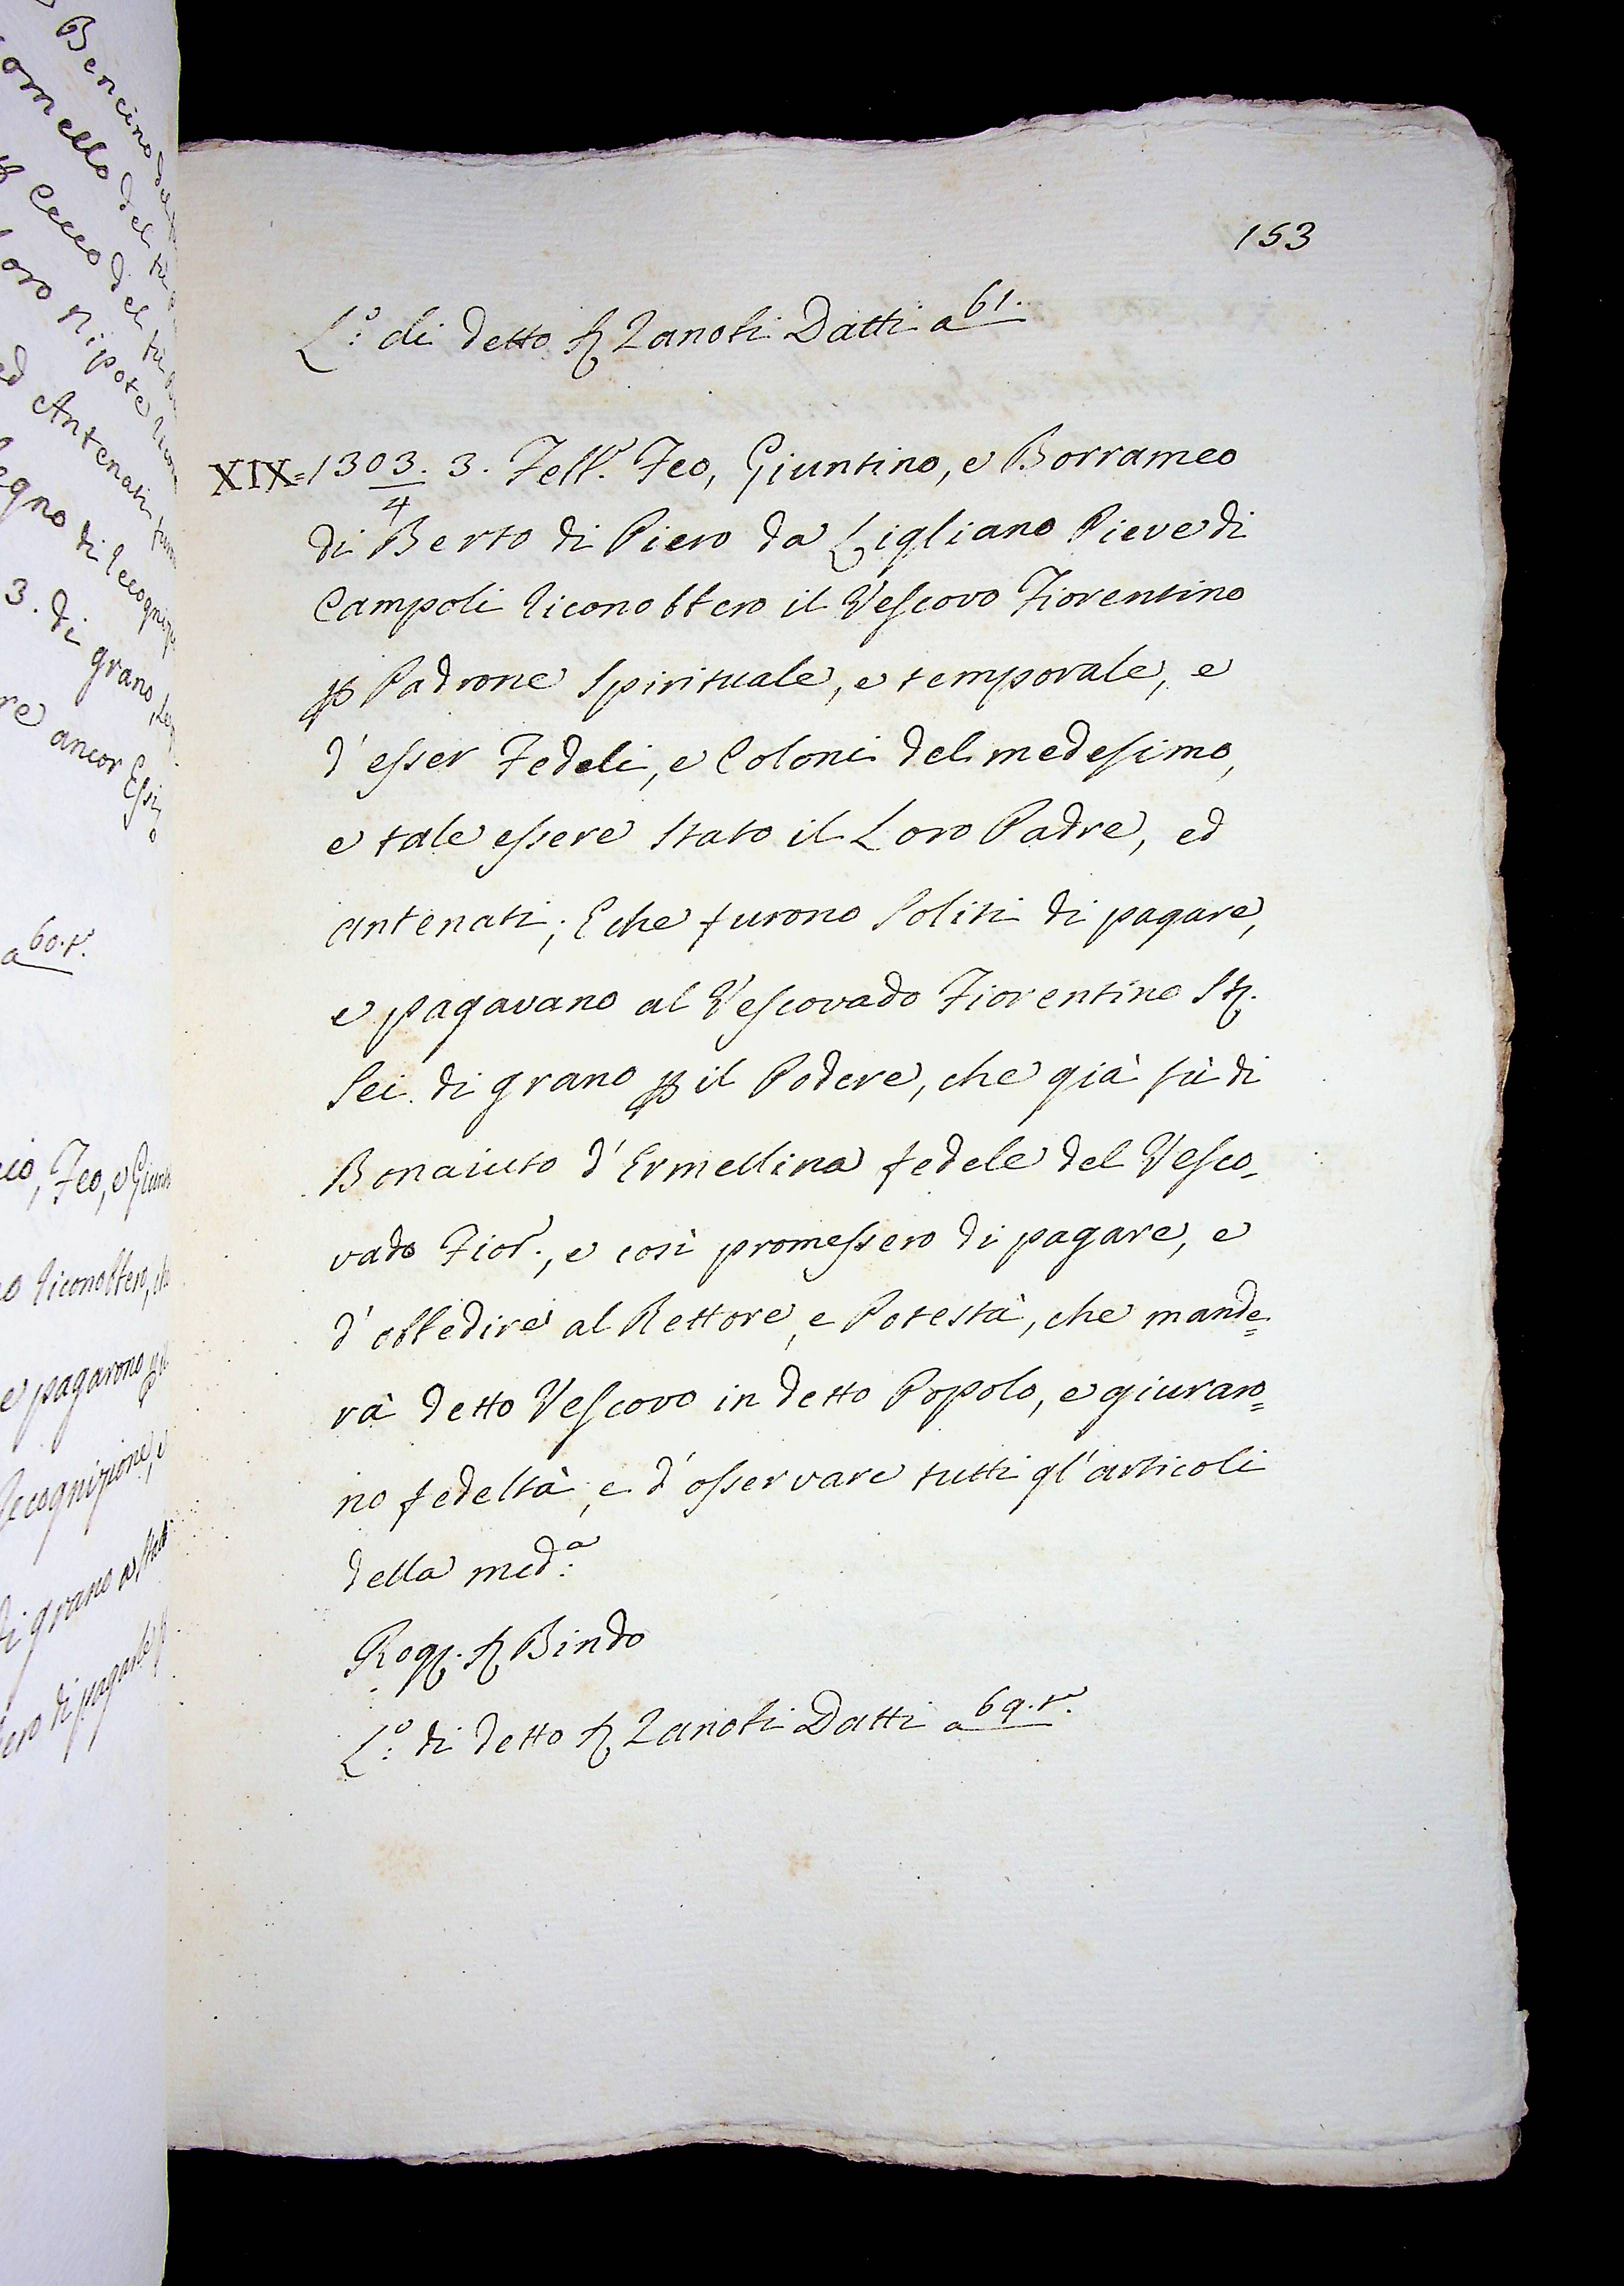 153
L.º di detto S. Zanobi Datti a 61.
XIX=1303./4 3. Febb.º Feo, Giuntino, e Borrameo
di Berto di Piero da Ligliano Pieve di
Campoli riconobbero il Vescovo Fiorentino
p Padrone Spirituale, e temporale, e
d'esser Fedeli, e Coloni del medesimo,
e tale essere stato il Loro Padre, ed
antenati; E che furono soliti di pagare,
e pagavano al Vescovado Fiorentino St.
sei di grano p il Podere, che già fù di
Bonaiuto d'Ermellina fedele del Vesco-
vado Fior., e così promessero di pagare, e
d'obbedire al Rettore, e Potestà, che mande=
rà detto Vescovo in detto Popolo, e giuraro=
no fedeltà, e d'osservare tutti gl'articoli
della med.ª
Rog. S. Bindo
L.º di detto S. Zanobi Datti a 69.t.
Bencino
del
Cecco del
loro Nipote
ed Antenati
di recogniz
3. di grano,
re ancor Essi
a 60.t.
cio, Feo, e Giunt
o riconobbero, ch
e pagarono
Recognizione, e
di grano a
ero di pagarle